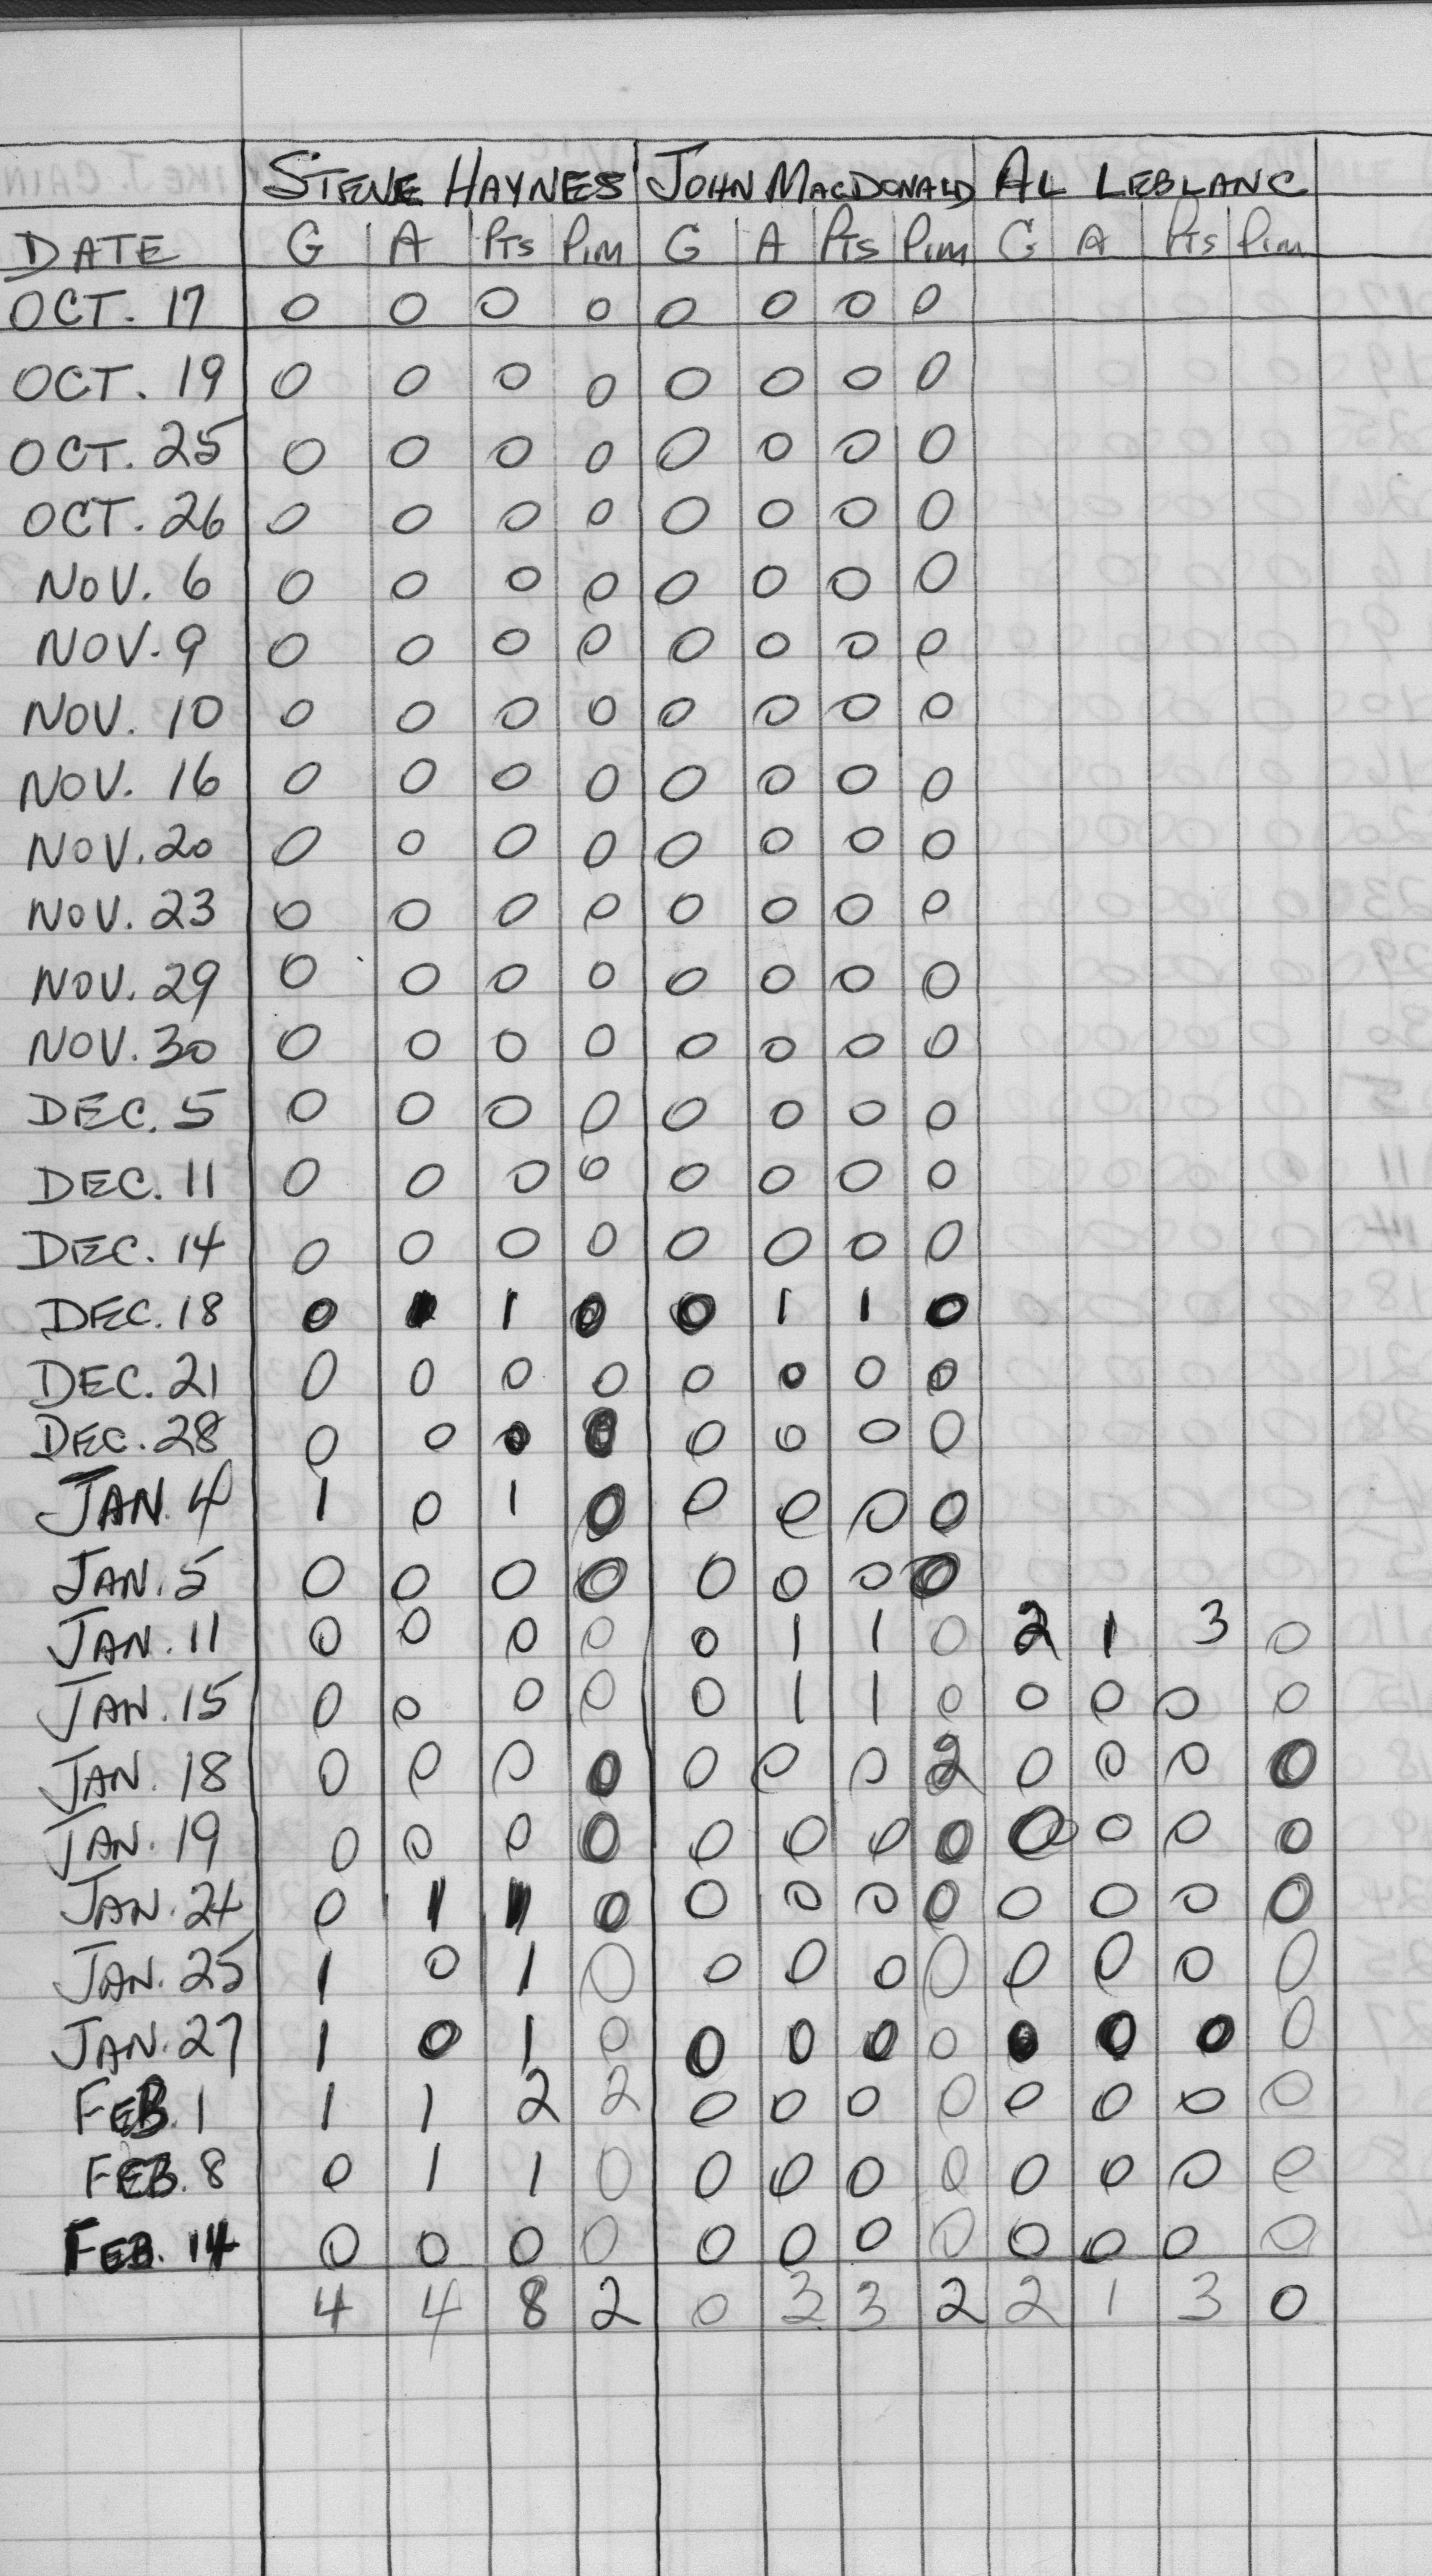 STEVE HAYNES JOHN MACDONALD AL LEBLANC
DATE G A PTS PIM G A PTS PIM G A PTS PIM
OCT. 17 0 0 0 0 0 0 0 0
OCT. 19 0 0 0 0 0 0 0 0
OCT. 25 0 0 0 0 0 0 0 0
OCT. 26 0 0 0 0 0 0 0 0
NOV. 6 0 0 0 0 0 0 0 0
NOV. 9 0 0 0 0 0 0 0 0
NOV. 10 0 0 0 0 0 0 0 0
NOV. 16 0 0 0 0 0 0 0 0
NOV. 20 0 0 0 0 0 0 0 0
NOV. 23 0 0 0 0 0 0 0 0
NOV. 29 0 0 0 0 0 0 0 0
NOV. 30 0 0 0 0 0 0 0 0
DEC. 5 0 0 0 0 0 0 0 0
DEC. 11 0 0 0 0 0 0 0 0
DEC. 14 0 0 0 0 0 0 0 0
DEC. 18 0 1 1 0 0 1 1 0
DEC. 21 0 0 0 0 0 0 0 0
DEC. 28 0 0 0 0 0 0 0 0
JAN. 4 1 0 1 0 0 0 0 0
JAN. 5 0 0 0 0 0 0 0 0
JAN. 11 0 0 0 0 0 1 1 0 2 1 3 0
JAN. 15 0 0 0 0 0 1 1 0 0 0 0 0
JAN. 18 0 0 0 0 0 0 0 2 0 0 0 0
JAN. 19 0 0 0 0 0 0 0 0 0 0 0 0
JAN. 24 0 1 1 0 0 0 0 0 0 0 0 0
JAN. 25 1 0 1 0 0 0 0 0 0 0 0 0
JAN. 27 1 0 1 0 0 0 0 0 0 0 0 0
FEB. 1 1 1 2 2 0 0 0 0 0 0 0 0
FEB. 8 0 1 1 0 0 0 0 0 0 0 0 0
FEB. 14 0 0 0 0 0 0 0 0 0 0 0 0
4 4 8 2 0 3 3 2 2 1 3 0